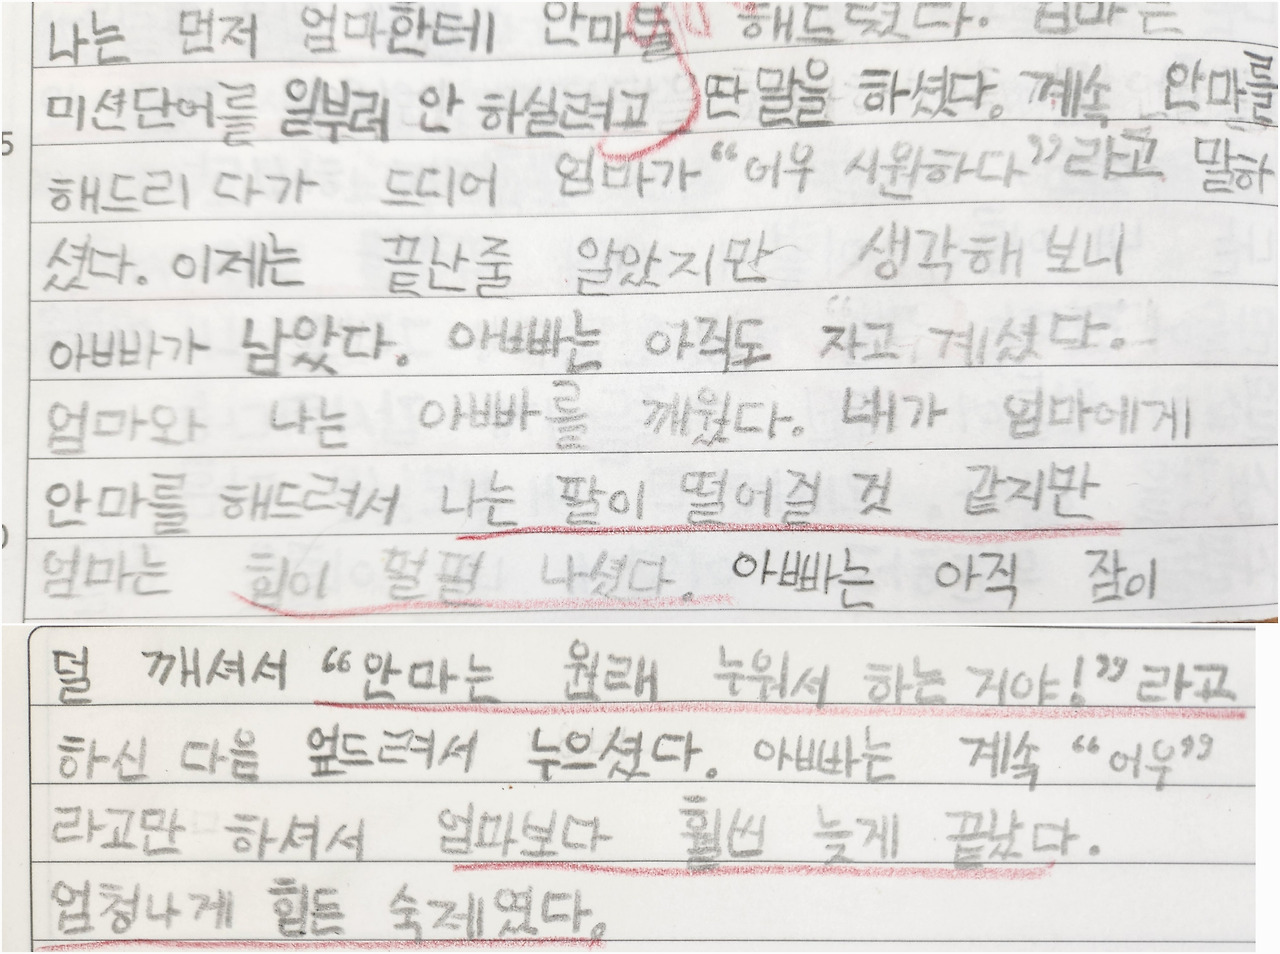 나는 먼저 엄마한테 안마를 해드렸다. 엄마는
미션단어를 일부러 안 하실려고 딴 말을 하셨다. 계속 안마를
5
해드리 다가 드디어 엄마가 “어우 시원하다”라고 말하
셨다. 이제는 끝난줄 알았지만 생각해 보니
아빠가 남았다. 아빠는 아직도 자고 계셨다.
엄마와 나는 아빠를 깨웠다. 내가 엄마에게
안마를 해드려서 나는 팔이 떨어질 것 같지만
엄마는 힘이 펄펄 나셨다. 아빠는 아직 잠이
덜 깨셔서 “안마는 원래 누워서 하는 거야!”라고
하신 다음 엎드려서 누으셨다. 아빠는 계속 “어우”
라고만 하셔서 엄마보다 훨씬 늦게 끝났다.
엄청나게 힘든 숙제였다.